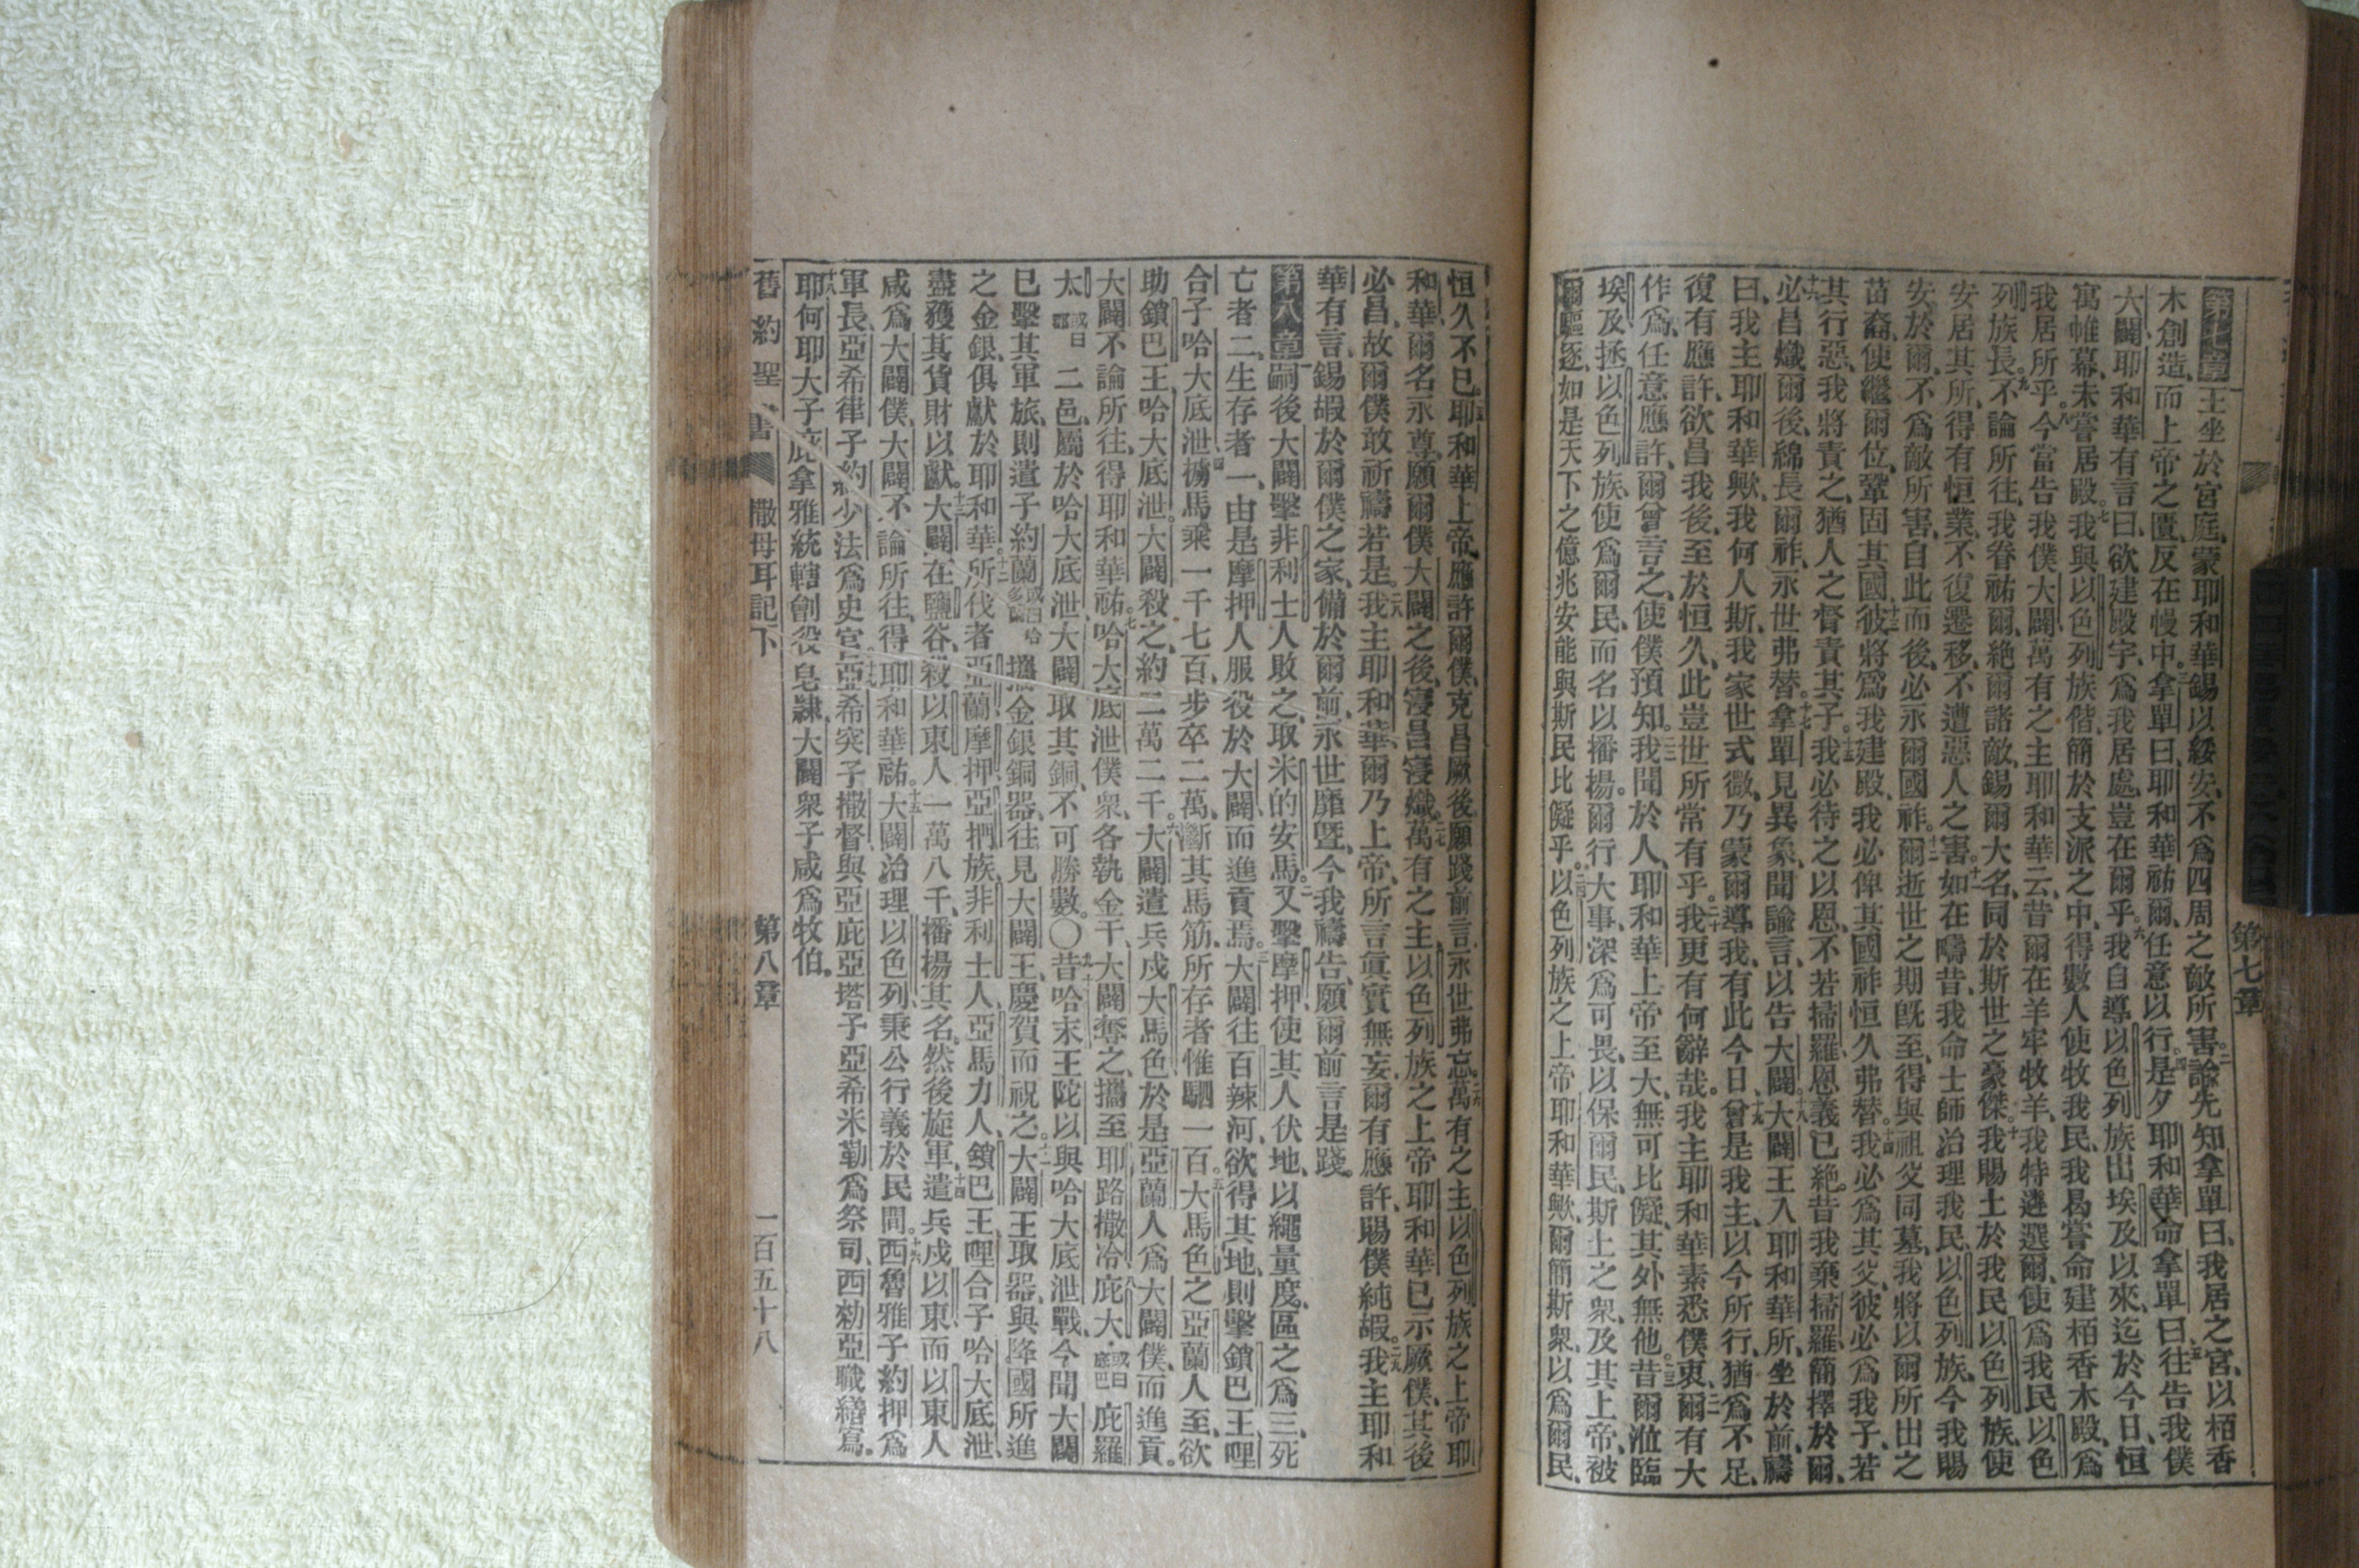 第七章
第七章 王坐於宮庭、蒙耶和華錫以綏安、不爲四周之敵所害。二諭先知拿單曰、我居之宮、以栢香
木創造、而上帝之匱、反在幔中。三拿單曰、耶和華祐爾、任意以行。四是夕耶和華命拿單曰、五往告我僕
大闢、耶和華有言曰、欲建殿宇、爲我居處、豈在爾乎。六我自導以色列族出埃及以來、迄於今日、恒
寓帷幕、未嘗居殿。七我與以色列族偕、簡於支派之中、得數人使牧我民、我曷嘗命建栢香木殿、爲
我居所乎。八今當告我僕大闢、萬有之主耶和華云、昔爾在羊牢牧羊、我特遴選爾、使爲我民以色
列族長。九不論所往、我眷祐爾、絕爾諸敵、錫爾大名、同於斯世之豪傑。十我賜土於我民以色列族、使
安居其所、得有恒業、不復遷移、不遭惡人之害。十一如在疇昔、我命士師治理我民、以色列族、今我賜
安於爾、不爲敵所害、自此而後、必永爾國祚。十二爾逝世之期旣至、得與祖父同墓、我將以爾所出之
苗裔、使繼爾位、鞏固其國、十三彼將爲我建殿、我必俾其國祚恒久弗替。十四我必爲其父、彼必爲我子、若
其行惡、我將責之、猶人之督責其子。十五我必待之以恩、不若掃羅、恩義已絕。昔我棄掃羅、簡擇於爾、
十六必昌熾爾後、綿長爾祚、永世弗替。十七拿單見異象、聞諭言、以告大闢。十八大闢王入耶和華所、坐於前、禱
曰、我主耶和華歟、我何人斯、我家世式微、乃蒙爾導我、有此今日。十九曾是我主、以今所行、猶爲不足、
復有應許、欲昌我後、至於恒久、此豈世所常有乎。二十我更有何辭哉。我主耶和華素悉僕衷、二一爾有大
作爲、任意應許、爾曾言之、使僕預知。二二我聞於人、耶和華上帝至大、無可比儗、其外無他。二三昔爾涖臨
埃及、拯以色列族、使爲爾民、而名以播揚、爾行大事、深爲可畏、以保爾民、斯土之衆、及其上帝、被
爾驅逐、如是天下之億兆、安能與斯民比儗乎。二四以色列族之上帝耶和華歟、爾簡斯衆、以爲爾民、
恒久不已。二五耶和華上帝、應許爾僕、克昌厥後、願踐前言、永世弗忘。二六萬有之主、以色列族之上帝耶
和華、爾名永尊、願爾僕大闢之後、寖昌寖熾。二七萬有之主、以色列族之上帝耶和華、已示厥僕、其後
必昌、故爾僕敢祈禱若是。二八我主耶和華、爾乃上帝、所言眞實無妄、爾有應許、賜僕純嘏。二九我主耶和
華有言、錫嘏於爾僕之家、備於爾前、永世靡曁、今我禱告、願爾前言是踐。
第八章 一嗣後大闢擊非利士人敗之、取米的安馬。二又擊摩押、使其人伏地、以繩量度、區之爲三、死
亡者二、生存者一、由是摩押人服役於大闢、而進貢焉。三大闢往百辣河、欲得其地、則擊鎖巴王哩
合子哈大底泄、四擄馬乘一千七百、步卒二萬、斷其馬筋、所存者惟駟一百。五大馬色之亞蘭人至、欲
助鎖巴王哈大底泄、大闢殺之、約二萬二千。六大闢遣兵戍大馬色、於是亞蘭人爲大闢僕、而進貢。
大闢不論所往、得耶和華祐。七哈大底泄僕衆、各執金干、大闢奪之、攜至耶路撒冷。八庇大、或曰庇巴 庇羅
太、或曰 二邑、屬於哈大底泄、大闢取其銅、不可勝數。〇九昔哈末王陀以與哈大底泄戰、今聞大闢
已擊其軍旅、十則遣子約蘭或曰哈多蘭 攜金銀銅器、往見大闢王、慶賀而祝之。十一大闢王取器、與降國所進
之金銀、俱獻於耶和華。十二所伐者亞蘭、摩押、亞捫族、非利士人、亞馬力人、鎖巴王、哩合子哈大底泄、
盡獲其貨財以獻。十三大闢在鹽谷、殺以東人一萬八千、播揚其名。然後旋軍、十四遣兵戍以東、而以東人
咸爲大闢僕、大闢不論所往、得耶和華祐。十五大闢治理以色列、秉公行義於民間。十六西魯雅子約押爲
軍長、亞希律子約沙法爲史官、十七亞希突子撒督與亞庇亞塔子亞希米勒爲祭司、西勑亞職繕寫。
十八耶何耶大子庇拿雅統轄劊役皂隸、大闢衆子咸爲牧伯。
舊約聖書 撒母耳記下 第八章 一百五十八